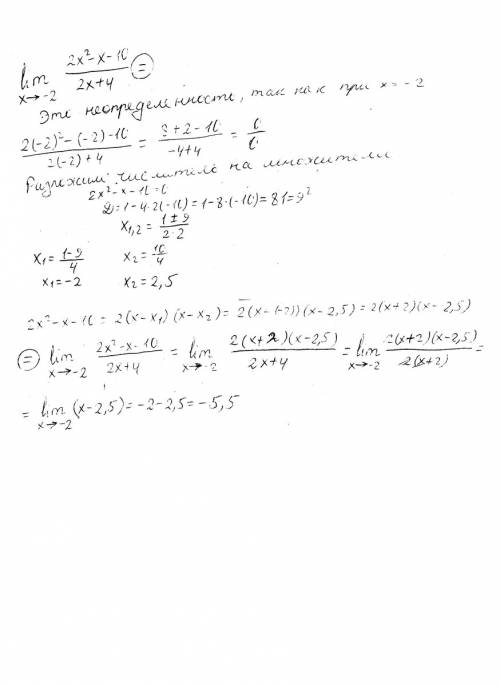 lim x→-2 (2x²-x-10)/(2x+4) ⊜
Это неопределенность, так как при x = -2
(2(-2)²-(-2)-10)/(2(-2)+4) = (8+2-10)/(-4+4) = 0/0
Разложим числитель на множители
2x²-x-10=0
D=1-4·2(-10)=1-8·(-10)=81=9²
x₁,₂=(1±9)/(2·2)
x₁=(1-9)/4 x₂=10/4
x₁=-2 x₂=2,5
2x²-x-10=2(x-x₁)(x-x₂)=2(x-(-2))(x-2,5)=2(x+2)(x-2,5)
⊜ lim x→-2 (2x²-x-10)/(2x+4) = lim x→-2 (2(x+2)(x-2,5))/(2x+4) = lim x→-2 (2(x+2)(x-2,5))/(2(x+2)) =
= lim x→-2 (x-2,5)=-2-2,5=-5,5